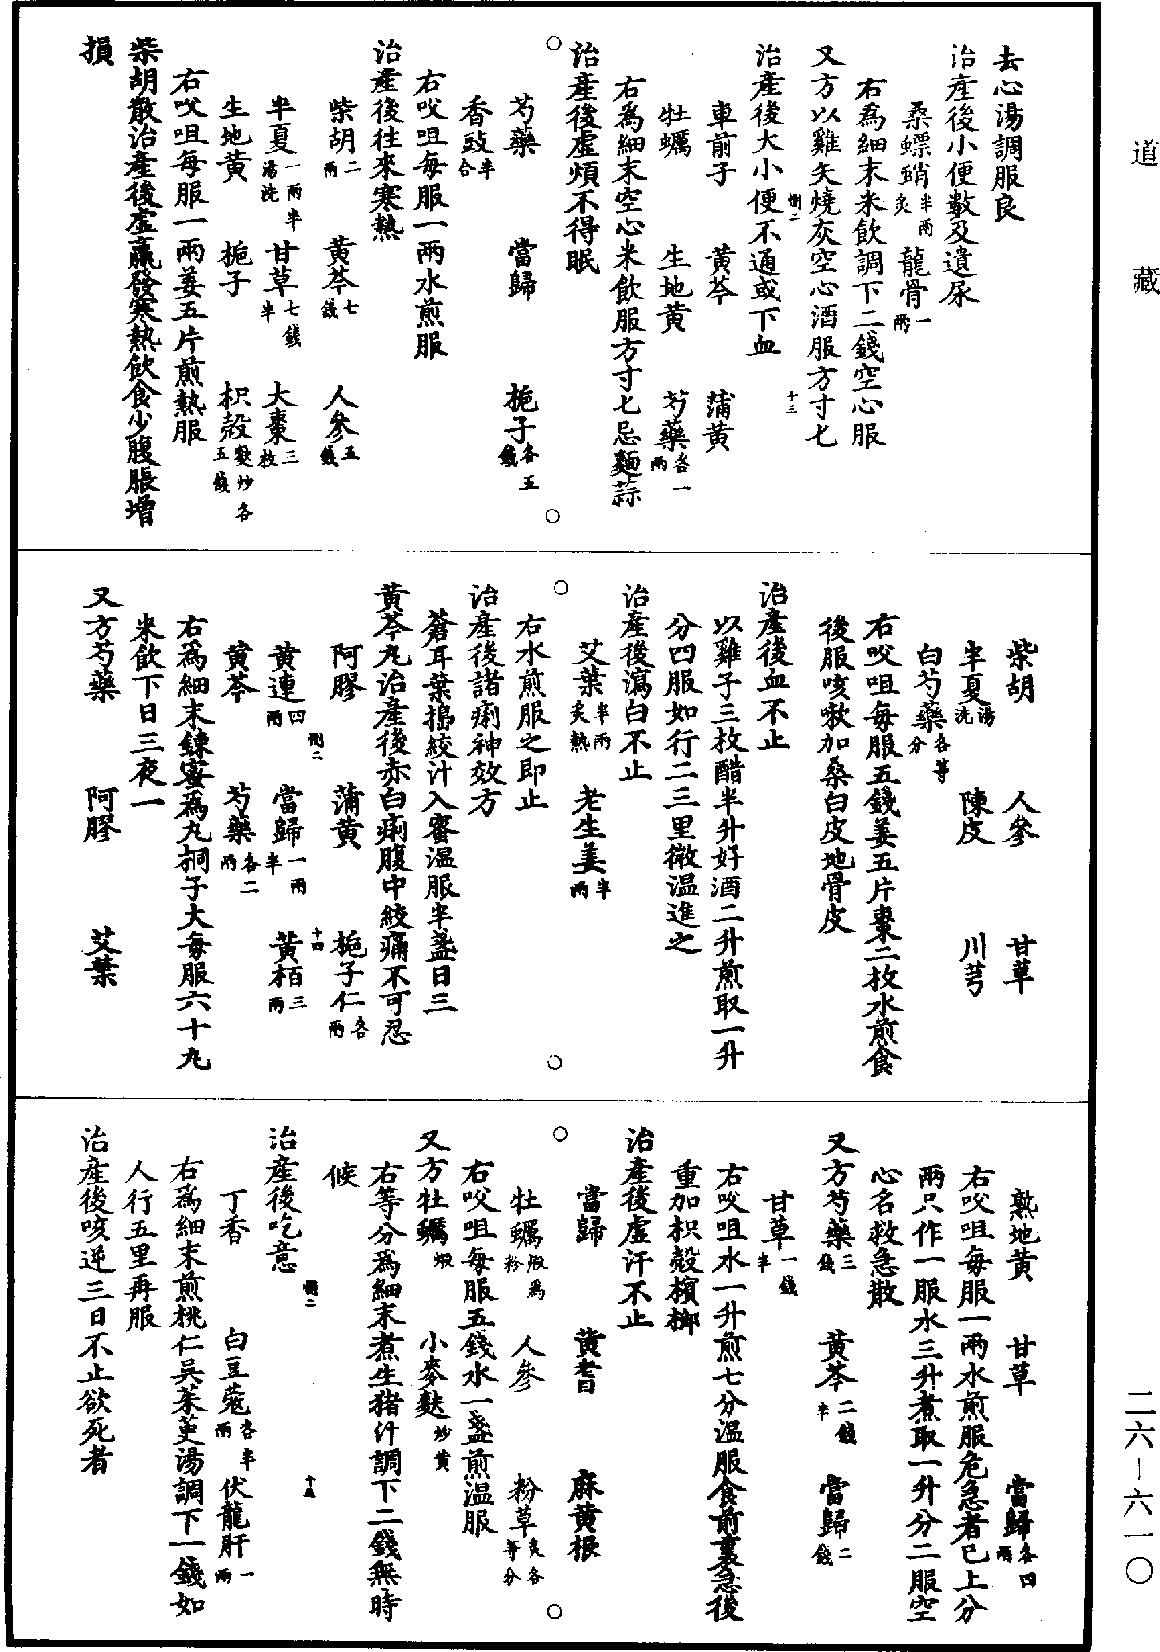 道藏
去心湯調服良
治產後小便數及遺尿
桑螵蛸半兩炙 龍骨一兩
右為細末米飲調下二錢空心服
又方以雞矢燒灰空心酒服方寸匕
治產後大小便不通或下血
車前子 黃芩 蒲黃
牡蠣 生地黃 芍藥各一兩
右為細末空心米飲服方寸匕忌麵蒜
治產後虛煩不得眠
芍藥 當歸 梔子各五錢
香豉半合
右㕮咀每服一兩水煎服
治產後往來寒熱
柴胡二兩 黃芩七錢 人參五錢
半夏一兩半湯洗 甘草七錢半 大棗三枚
生地黃 梔子 枳殼麩炒各五錢
右㕮咀每服一兩姜五片煎熱服
柴胡散治產後虛羸發寒熱飲食少腹脹增
損
柴胡 人參 甘草
半夏湯洗 陳皮 川芎
白芍藥各等分
右㕮咀每服五錢姜五片棗二枚水煎食
後服咳嗽加桑白皮地骨皮
治產後血不止
以雞子三枚醋半升好酒二升煎取一升
分四服如行二三里微溫進之
治產後瀉白不止
艾葉半兩炙熱 老生姜半兩
右水煎服之即止
治產後諸痢神效方
蒼耳葉搗絞汁入蜜溫服半盞日三
黃芩丸治產後赤白痢腹中絞痛不可忍
阿膠 蒲黃 梔子仁各一兩
黃連四兩 當歸一兩半 黃栢三兩
黃芩 芍藥各二兩
右為細末鍊蜜為丸桐子大每服六十丸
米飲下日三夜一
又方芍藥 阿膠 艾葉
熟地黃 甘草 當歸各四兩
右㕮咀每服一兩水煎服危急者已上分
兩只作一服水三升煮取一升分二服空
心名救急散
又方芍藥三錢 黃芩二錢半 當歸二錢
甘草一錢半
右㕮咀水一升煎七分溫服食前裏急後
重加枳殼檳榔
治產後虛汗不止
當歸 黃耆 麻黃根
牡蠣煅為粉 人參 粉草炙各等分
右㕮咀每服五錢水一盞煎溫服
又方牡蠣煅 小麥麩炒黃
右等分為細末煮生猪汁調下二錢無時
候
治產後吃意
丁香 白豆蔻各半兩 伏龍肝一兩
右為細末煎桃仁吳茱萸湯調下一錢如
人行五里再服
治產後咳逆三日不止欲死者
二六—六一〇